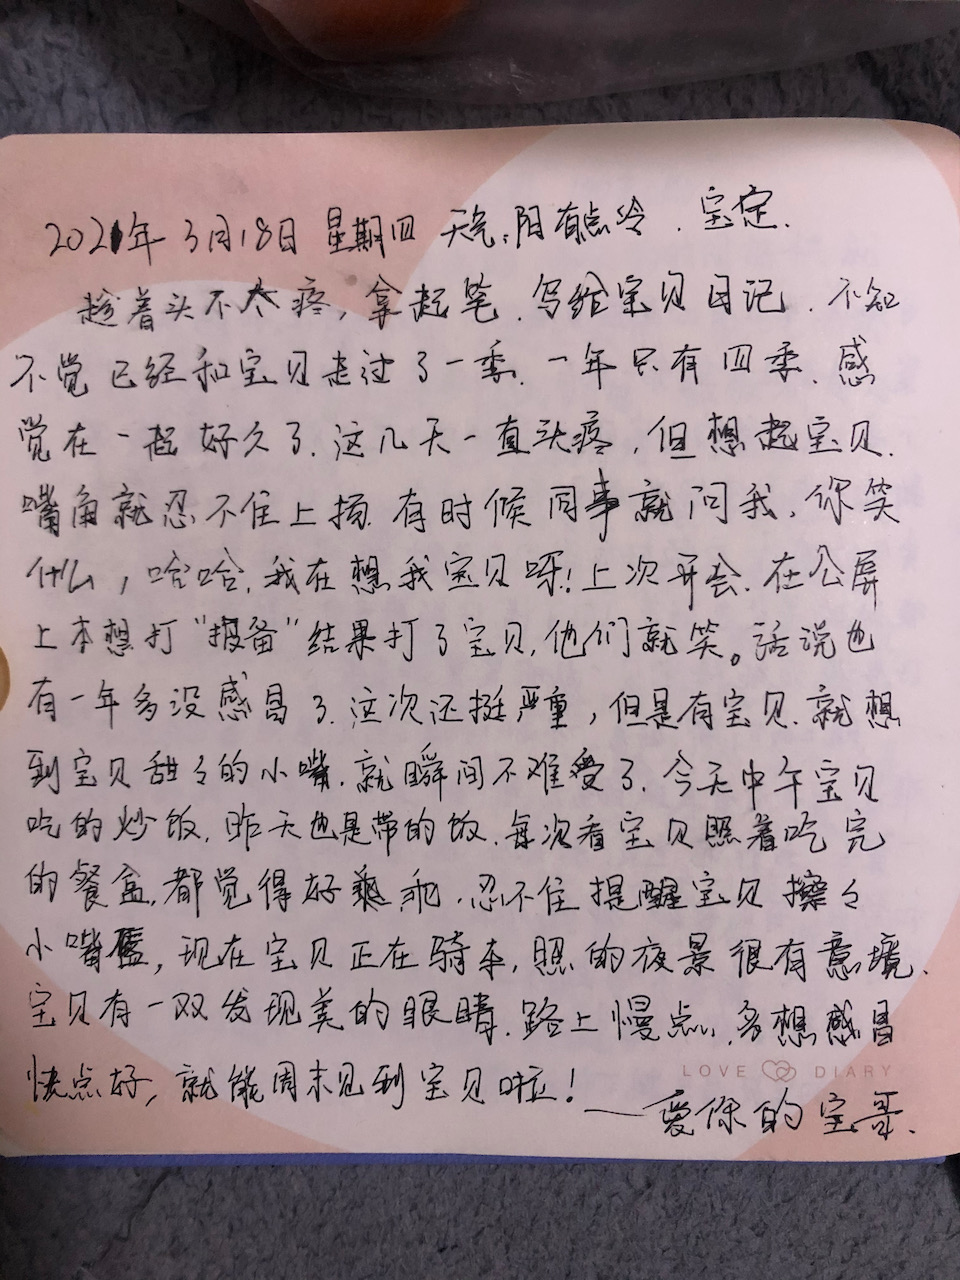 2021年 3月18日 星期四 天气:阳有点冷. 宝定.
趁着头不太疼,拿起笔.写给宝贝日记.不知
不觉已经和宝贝走过了一季.一年只有四季.感
觉在一起好久了.这几天一直头疼,但想起宝贝.
嘴角就忍不住上扬.有时候同事就问我,你笑
什么,哈哈.我在想我宝贝呀!上次开会.在公屏
上本想打“报备”结果打了宝贝,他们就笑。话说也
有一年多没感冒了.这次还挺严重,但是有宝贝.就想
到宝贝甜々的小嘴.就瞬间不难受了.今天中午宝贝
吃的炒饭.昨天也是带的饭.每次看宝贝照着吃完
的餐盒.都觉得好乖.忍不住提醒宝贝擦々
小嘴,现在宝贝正在骑车,照的夜景很有意境.
宝贝有一双发现美的眼睛.路上慢点,多想感冒
快点好,就能周末见到宝贝啦!
LOVE DIARY
——爱你的宝哥.